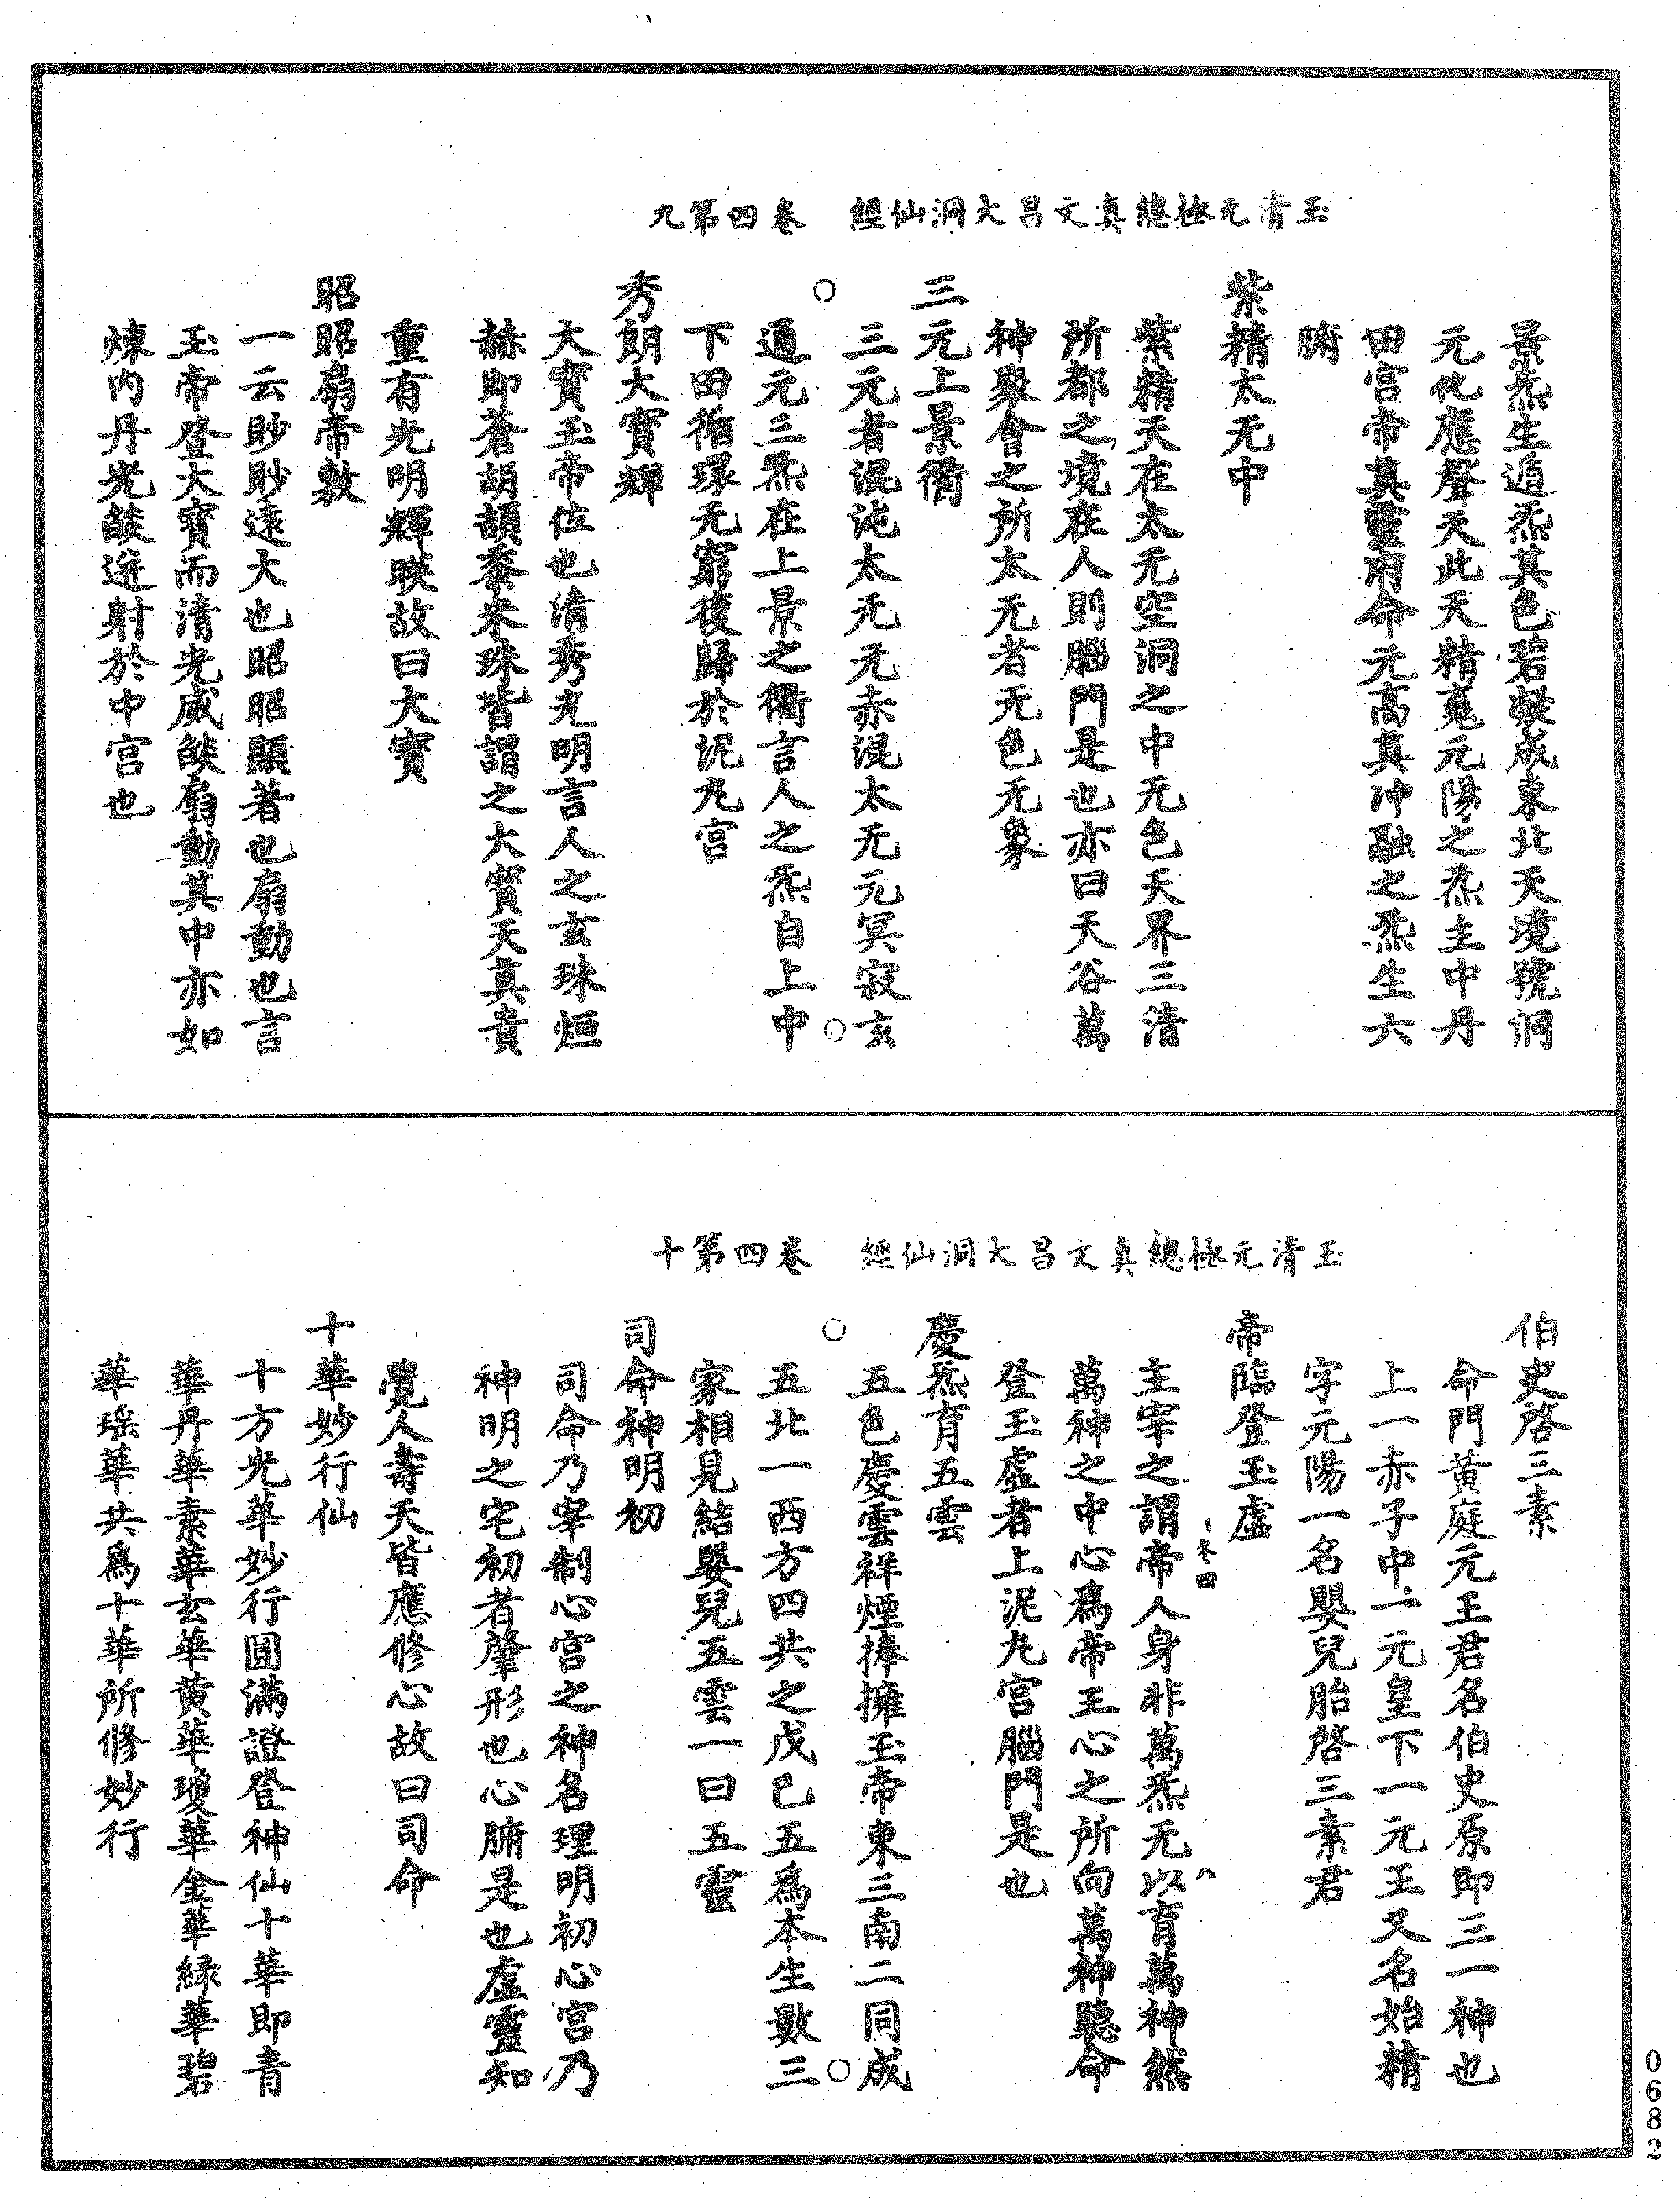 玉清无極總真文昌大洞仙經　卷四第九
景炁生遁炁其色碧凝成東北天境號洞
元化應聲天此天精蒐元陽之炁主中丹
田宮帝真靈府命元高真沖融之炁生六
腑
紫精太无中
紫精天在太无空洞之中无色天界三清
所都之境在人則腦門是也亦曰天谷萬
神聚會之所太无者无色无象
三元上景衢
三元者混沌太无元赤混太无元冥寂玄
通元三炁在上景之衢言人之炁自上中
下田循環无窮復歸於泥丸宮
秀朗大寶輝
大寶玉帝位也清秀光明言人之玄珠烜
赫即蒼胡頡黍米珠皆謂之大寶天真貴
重有光明輝映故曰大寶
昭昭扇帝敷
一云眇眇遠大也昭昭顯著也扇動也言
玉帝登大寶而清光威燄扇動其中亦如
煉內丹光燄迸射於中宮也
玉清无極總真文昌大洞仙經　卷四第十
伯史啓三素
命門黃庭元王君名伯史原即三一神也
上一赤子中一元皇下一元王又名始精
字元陽一名嬰兒胎啓三素君
帝臨登玉虛
主宰之謂帝人身非萬炁无以育萬神然
卷四
八
萬神之中心爲帝王心之所向萬神聽命
登玉虛者上泥丸宮腦門是也
慶炁育五雲
五色慶雲祥煙捧擁玉帝東三南二同成
五北一西方四共之戊己五爲本生數三
家相見結嬰兒五雲一曰五靈
司命神明初
司命乃宰制心宮之神名理明初心宮乃
神明之宅初者肇形也心腑是也虛靈知
覺人壽夭皆應修心故曰司命
十華妙行仙
十方光華妙行圓滿證登神仙十華即青
華丹華素華玄華黃華瓊華金華綠華碧
華瑤華共爲十華所修妙行
0682